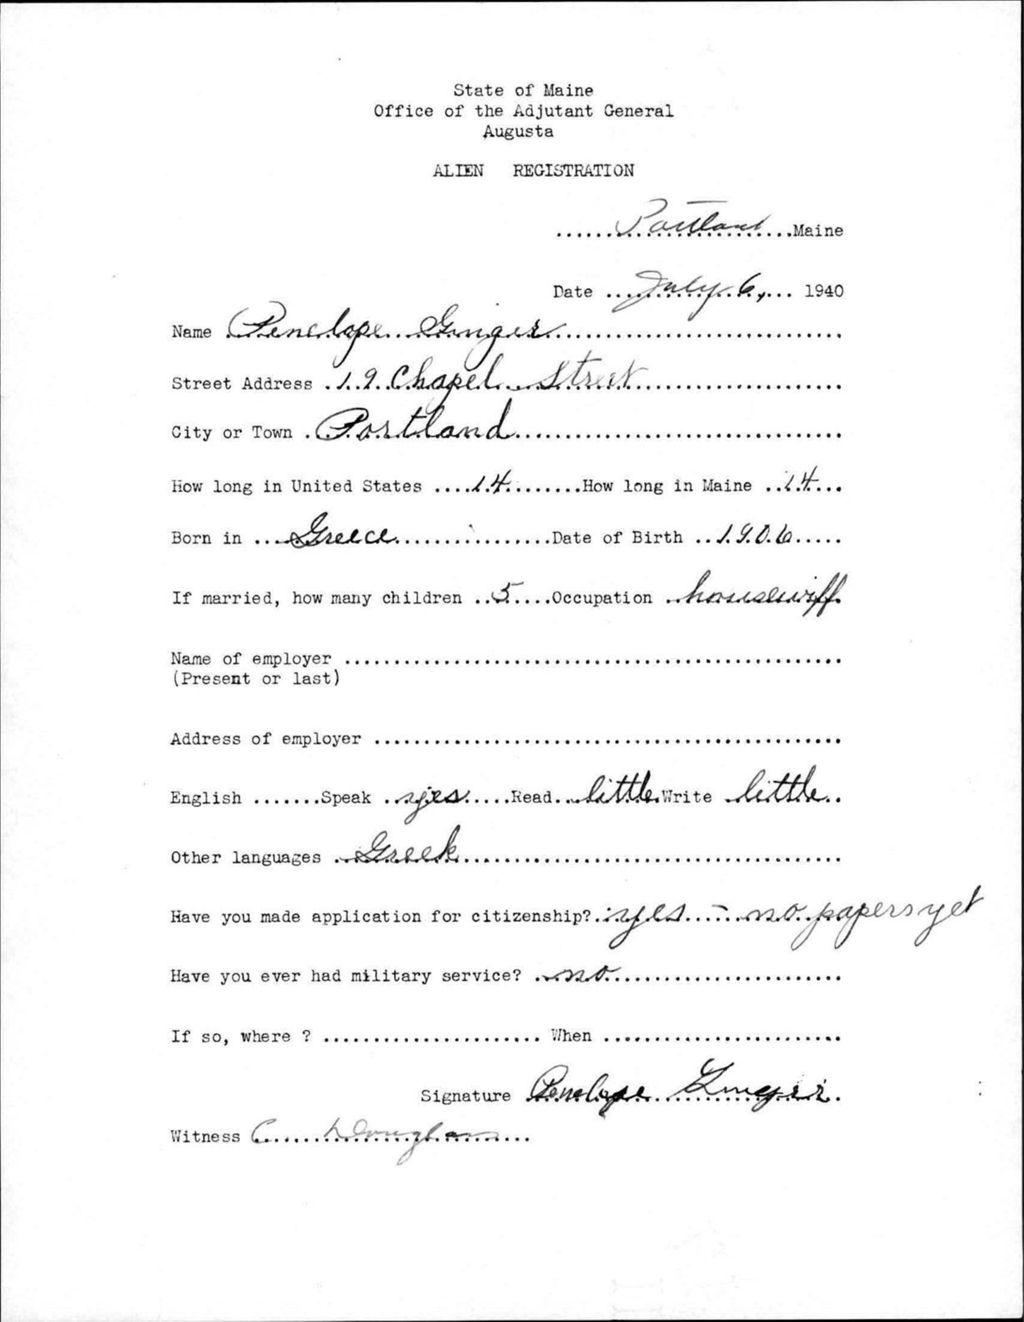 State of Maine
Office of the Adjutant General
Augusta
ALIEN REGISTRATION
......Portland...Maine
Date ...July 6,... 1940
Name Penelope Ginger..............................
Street Address .19 Chapel Street.....................
City or Town .Portland.................................
How long in United States ....14........How long in Maine ..14...
Born in ...Greece................Date of Birth ..1906.....
If married, how many children ..5....Occupation .housewiff.
Name of employer ..................................................
(Present or last)
Address of employer ...............................................
English .......Speak .yes.....Read..little.Write .little..
Other languages ..Greek.......................................
Have you made application for citizenship?..yes - no papers yet
Have you ever had military service? .no........................
If so, where ? ...................... When ........................
Signature Penelope Ginger.
Witness C. Douglass...